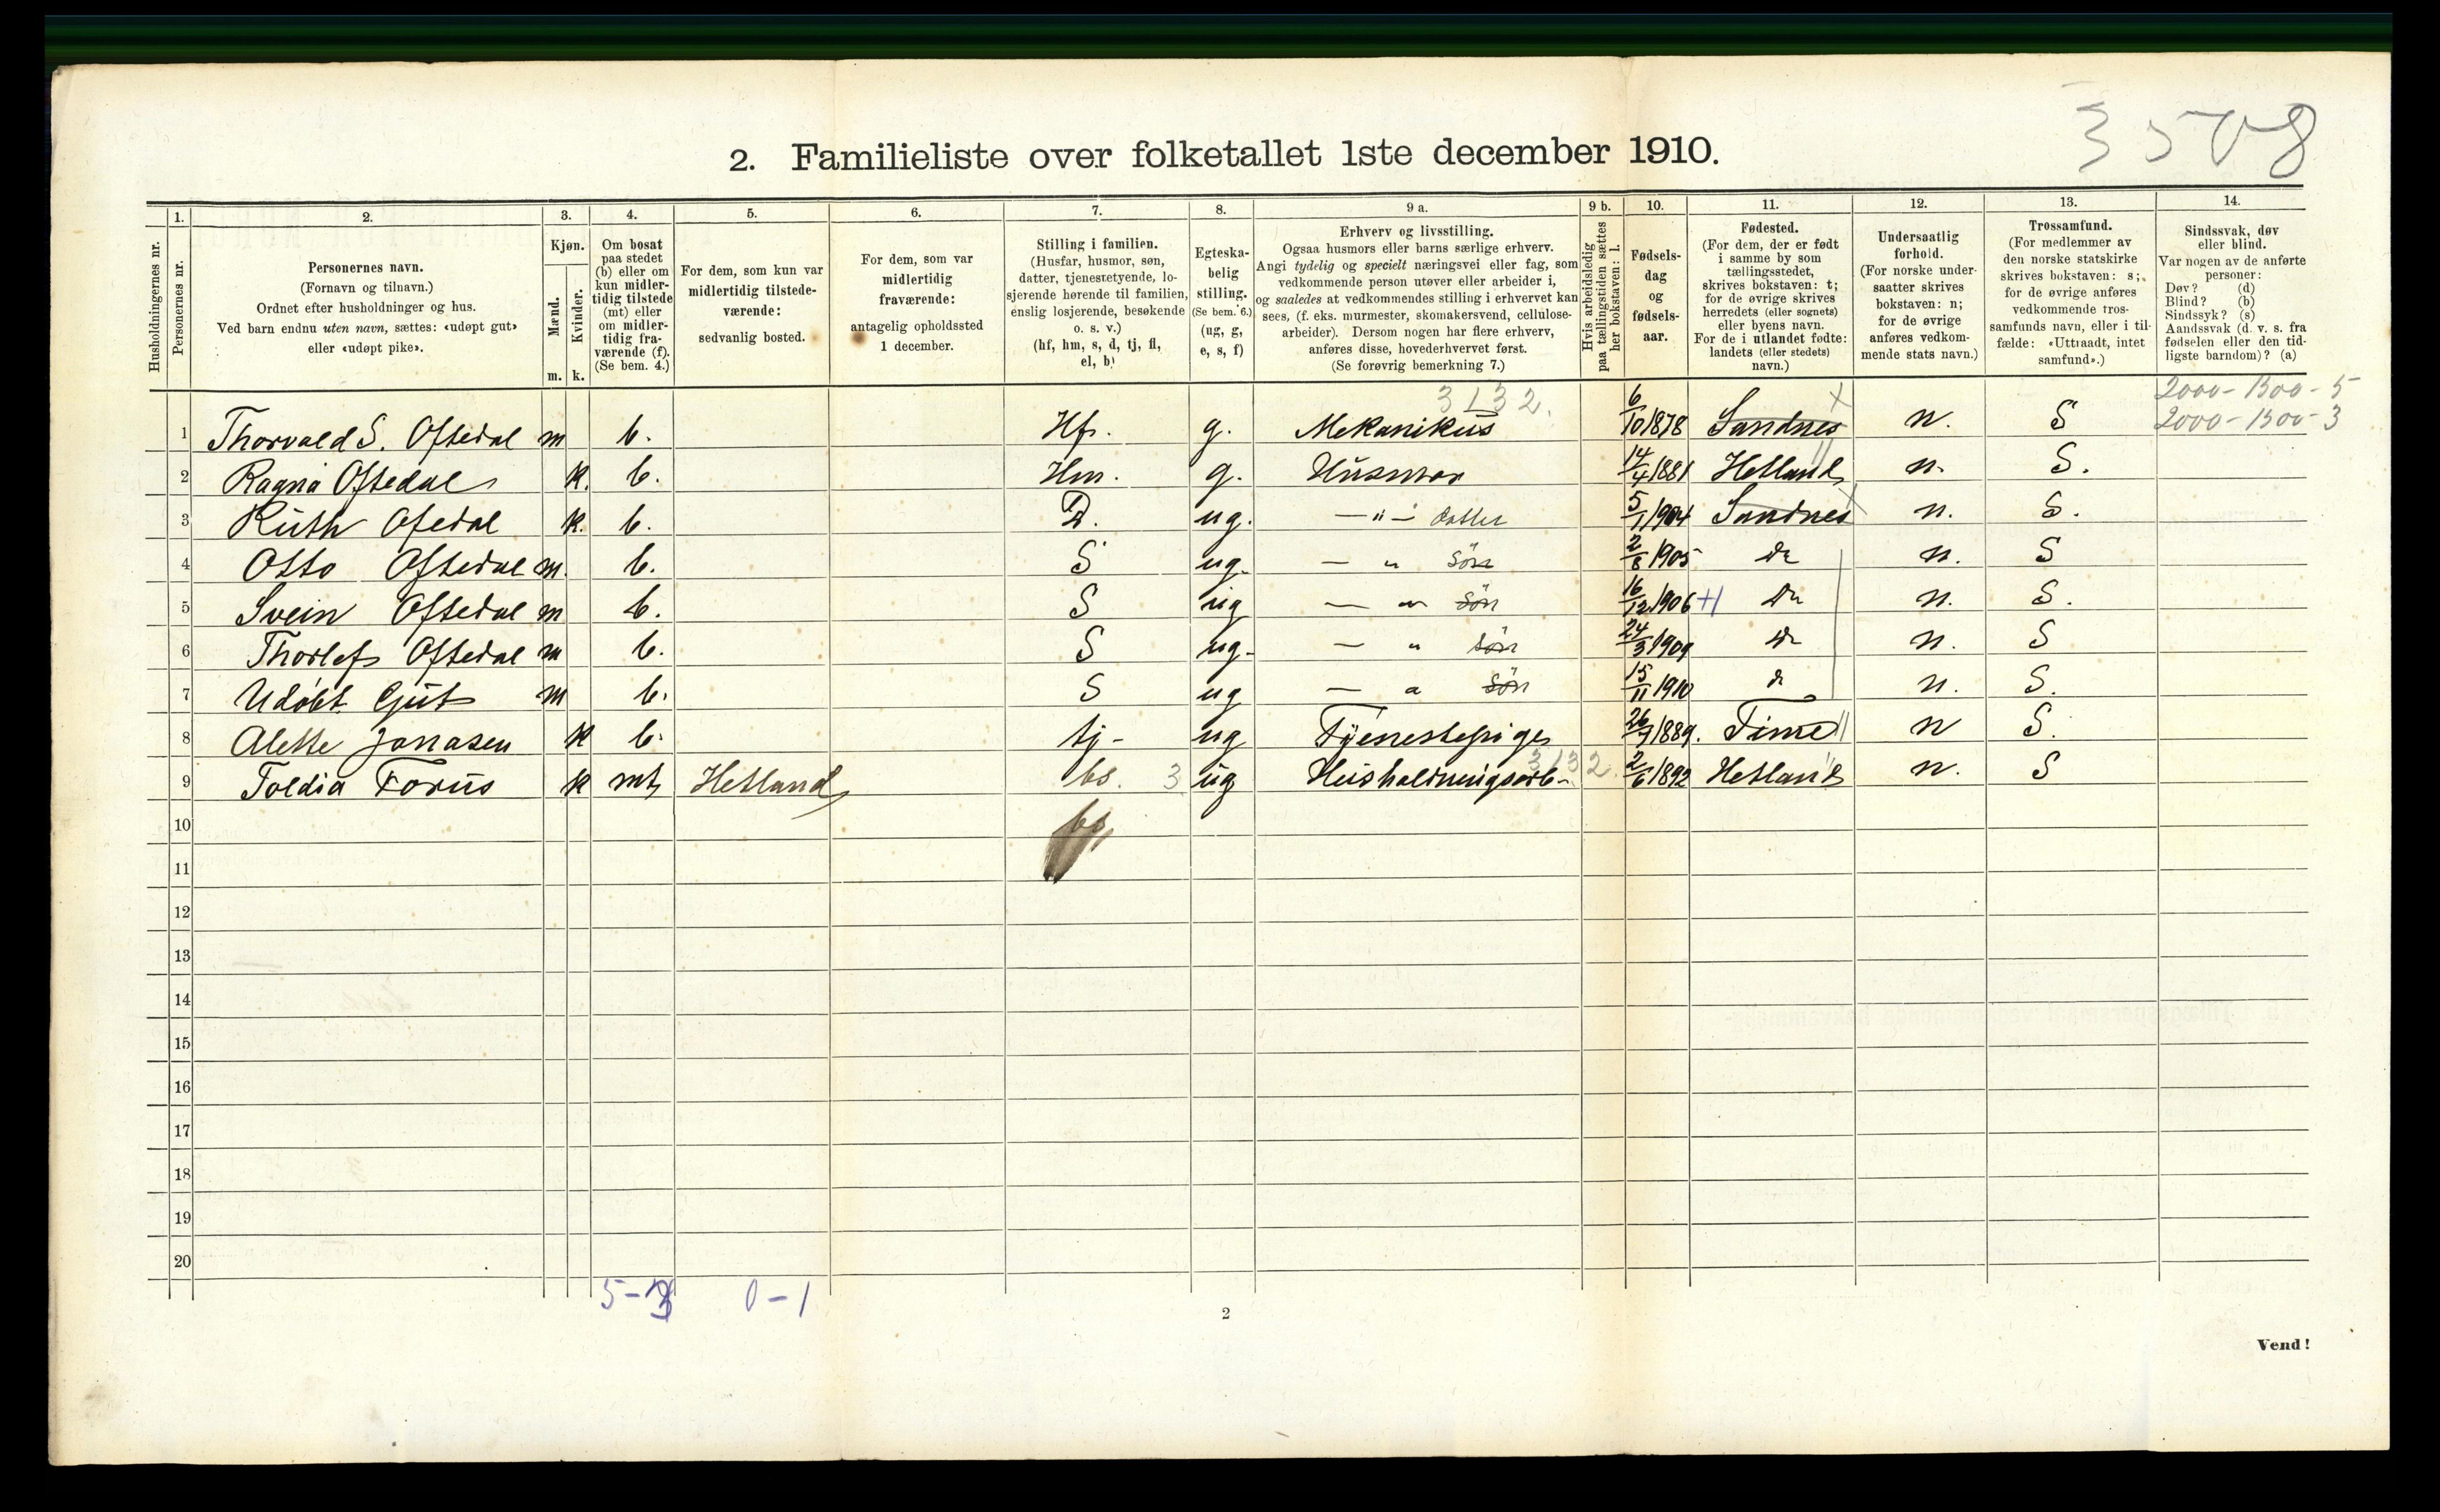 3508
2. Familieliste over folketallet 1ste december 1910.
Husholdningernes nr.
1.
Personernes nr.
2.
Personernes navn.
(Fornavn og tilnavn.)
Ordnet efter husholdninger og hus.
Ved barn endnu uten navn, sættes: «udøpt gut»
eller «udøpt pike».
3.
Kjøn.
Mænd.
Kvinder.
m. k.
4.
Om bosat
paa stedet
(b) eller om
kun midler-
tidig tilstede
(mt) eller
om midler-
tidig fra-
værende (f).
(Se bem. 4.)
5.
For dem, som kun var
midlertidig tilstede-
værende:
sedvanlig bosted.
6.
For dem, som var
midlertidig
fraværende:
antagelig opholdssted
1 december.
7.
Stilling i familien.
(Husfar, husmor, søn,
datter, tjenestetyende, lo-
sjerende hørende til familien,
enslig losjerende, besøkende
o. s. v.)
(hf, hm, s, d, tj, fl,
el, b)
8.
Egteska-
belig
stilling.
(Se bem. 6.)
(ug, g,
e, s, f)
9 a.
Erhverv og livsstilling.
Ogsaa husmors eller barns særlige erhverv.
Angi tydelig og specielt næringsvei eller fag, som
vedkommende person utøver eller arbeider i,
og saaledes at vedkommendes stilling i erhvervet kan
sees, (f. eks. murmester, skomakersvend, cellulose-
arbeider). Dersom nogen har flere erhverv,
anføres disse, hovederhvervet først.
(Se forøvrig bemerkning 7.)
9 b.
Hvis arbeidsledig
paa tællingstiden sættes
her bokstaven: l.
10.
Fødsels-
dag
og
fødsels-
aar.
11.
Fødested.
(For dem, der er født
i samme by som
tællingsstedet,
skrives bokstaven: t;
for de øvrige skrives
herredets (eller sognets)
eller byens navn.
For de i utlandet fødte:
landets (eller stedets)
navn.)
12.
Undersaatlig
forhold.
(For norske under-
saatter skrives
bokstaven: n;
for de øvrige
anføres vedkom-
mende stats navn.)
13.
Trossamfund.
(For medlemmer av
den norske statskirke
skrives bokstaven: s;
for de øvrige anføres
vedkommende tros-
samfunds navn, eller i til-
fælde: «Uttraadt, intet
samfund».)
14.
Sindssvak, døv
eller blind.
Var nogen av de anførte
personer:
Døv? (d)
Blind? (b)
Sindssyk? (s)
Aandssvak (d. v. s. fra
fødselen eller den tid-
ligste barndom)? (a)
3132. 2000-1500-5
1 Thorvald S. Oftedal m b. Hf. g. Mekanikus 6/10 1878 Sandnes n. S 2000-1500-3
2 Ragna Oftedal k. b. Hm. g. Husmor 14/4 1881 Hetland n. S.
3 Ruth Ofedal k. b. D. ug. — " — datter 5/1 1904 Sandnes n. S.
4 Otto Oftedal m. b. S ug. — " Sön 2/8 1905 do n. S
5 Svein Oftedal m b. S ug — " Sön 16/12 1906 +1 do n. S.
6 Thorlef Oftedal m b. S ug. — " Sön 24/3 1909 do n. S
7 Udöbt Gut m b. S ug — " Sön 15/11 1910 do n. S.
8 Alette Jonasen k b. tj- ug Tjenestepige 26/7 1889. Time n S.
9 Toldia Forus k mt Hetland bs. 3 ug Husholdningsarb- 3132. 2/6 1892 Hetland n. S
10 bs
11
12
13
14
15
16
17
18
19
20
5-3 0-1
2
Vend!